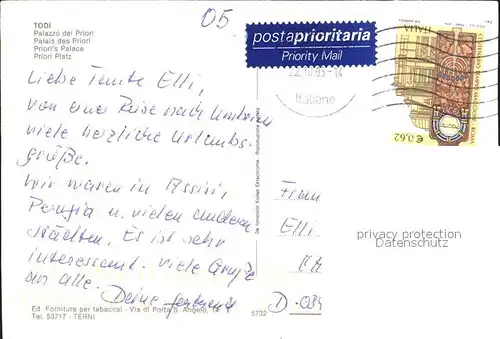 TODI
Palazzo dei Priori
Palais des Priori
Priori's Palace
Priori Platz
05
postaprioritaria
Priority Mail
ITALIA
€0,62
14
Italiane
Liebe Tante Elli,
von einer Reise nach Umbrien
viele herzliche Urlaubs-
grüße.
Wir waren in Assisi,
Perugia u. vielen anderen
Städten. Es ist sehr
interessant. Viele Grüße
an alle.
Deine
Frau
Elli
D-
privacy protection
Datenschutz
Ed. Forniture per tabaccai - Via di Porta S. Angelo, 14
Tel. 53717 - TERNI
5732